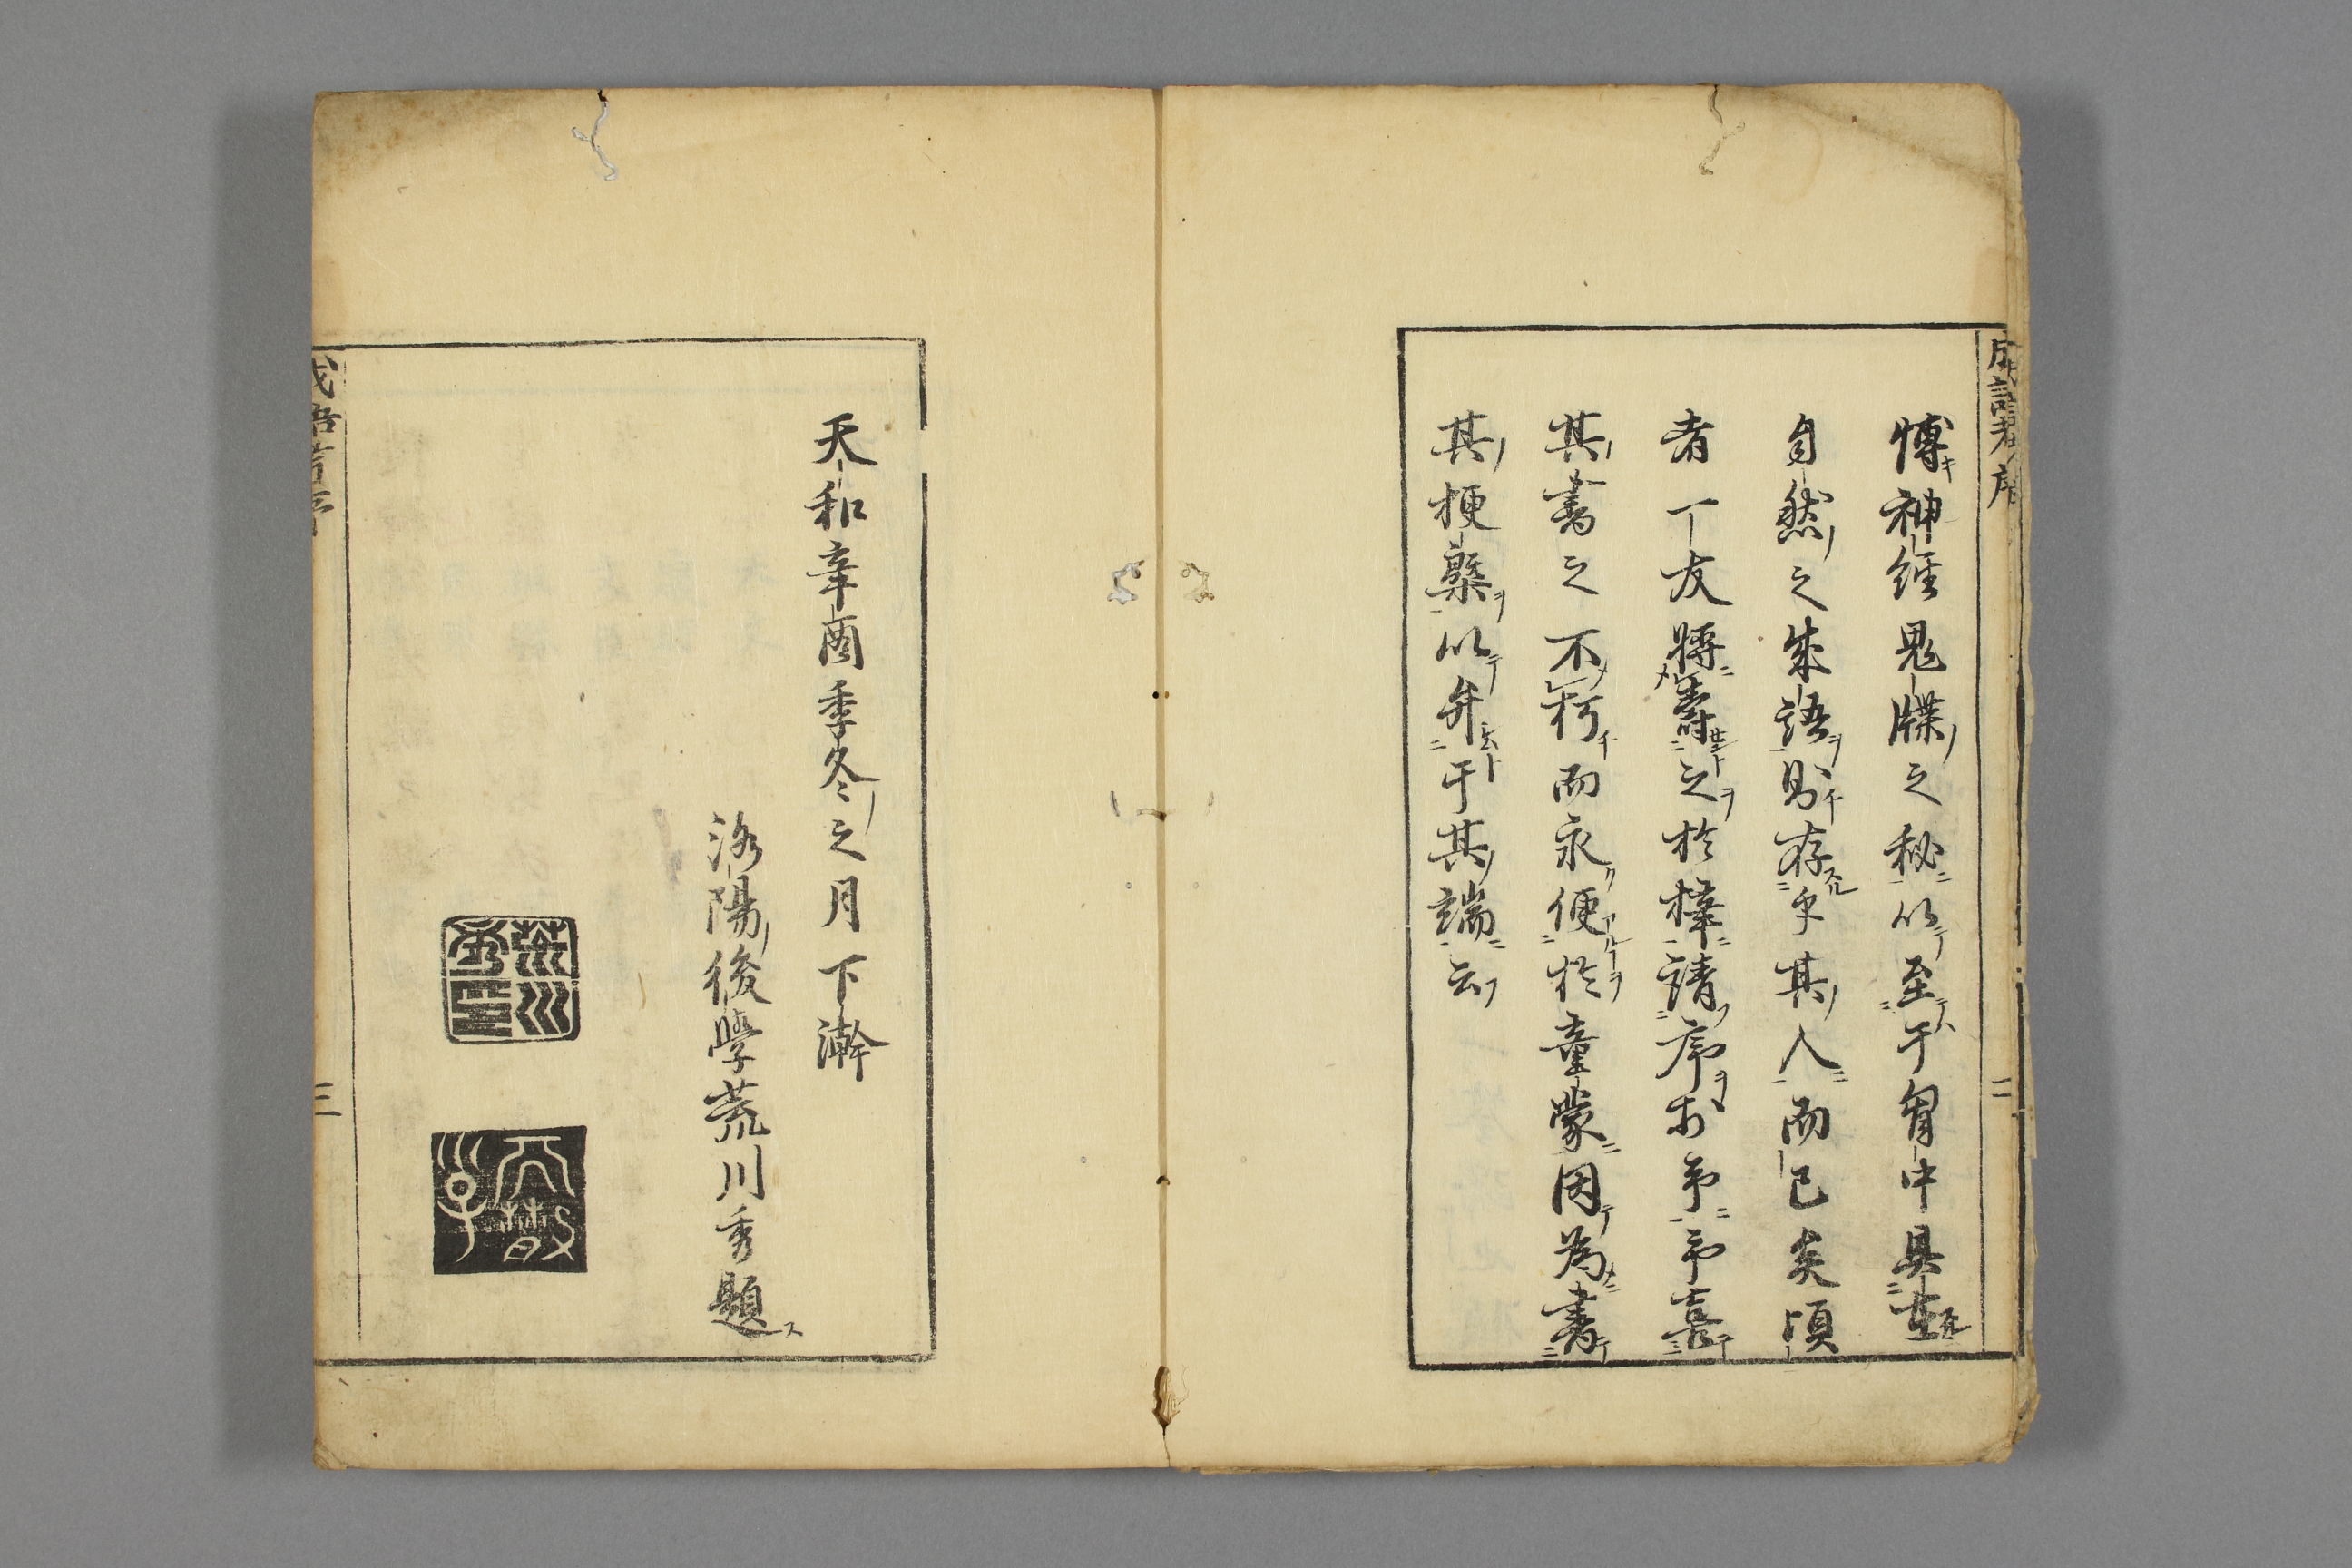 成語考序
博神經鬼牒之秘以至于胷中具
自然之成語則存乎其人而已矣頃
者一友將壽之於梓請序於予予嘉
其書之不朽而永便於童蒙因為書
其梗槩以弁于其端云
二
天和辛酉季冬之月下澣
洛陽後學荒川秀題
荒川秀印
天散子
成語考序
三